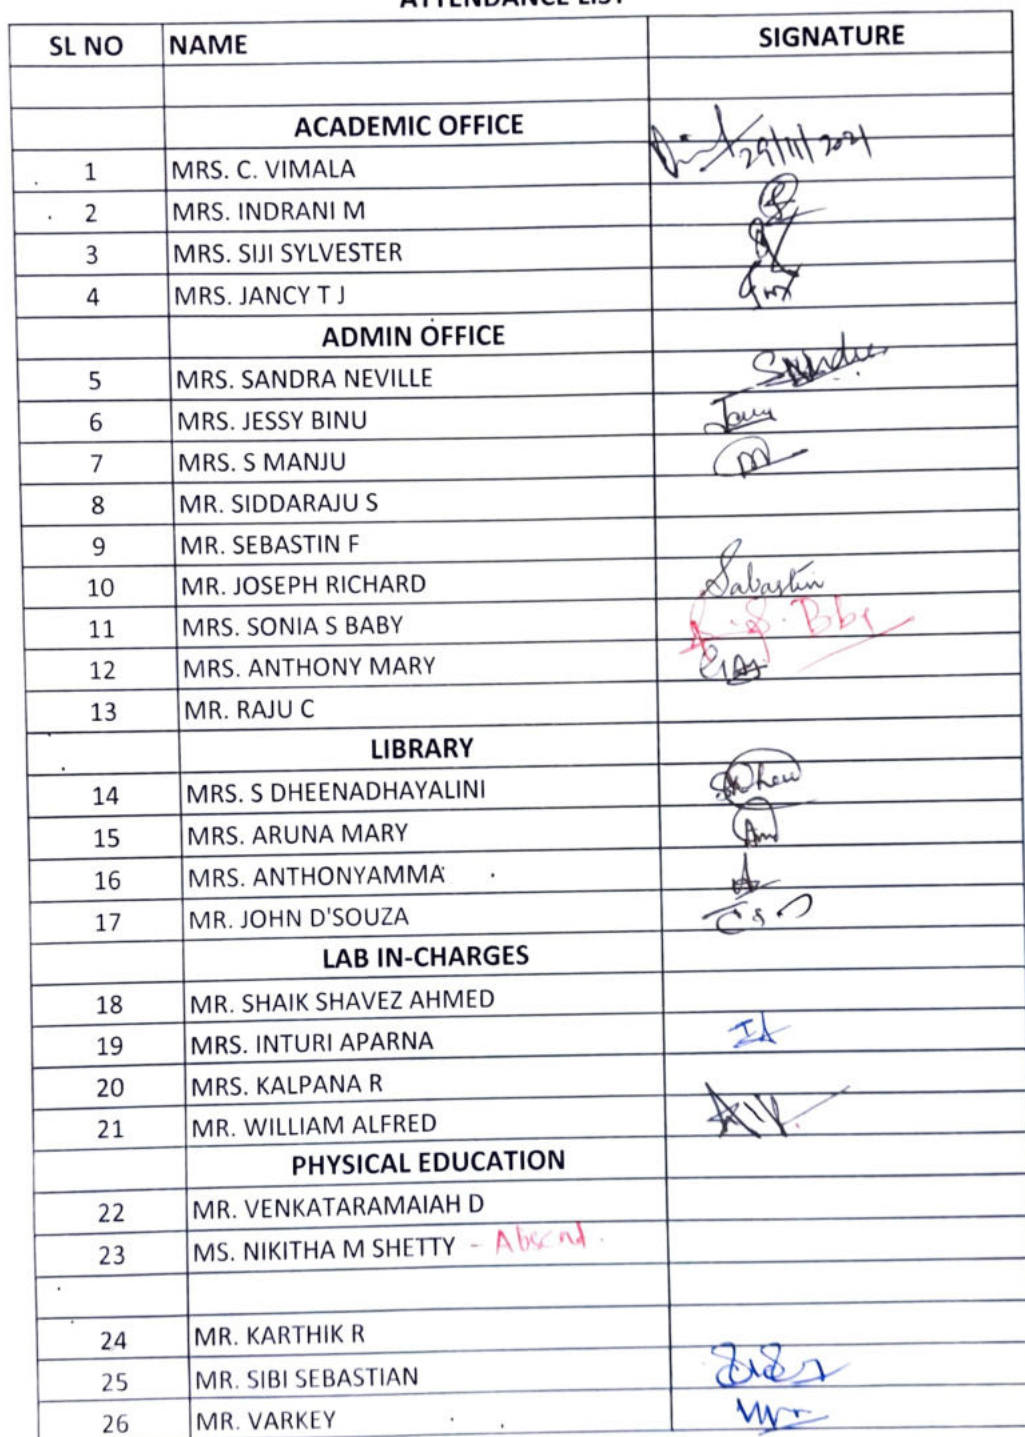 ATTENDANCE LIST
SL NO NAME SIGNATURE
ACADEMIC OFFICE
29/11/2021
1 MRS. C. VIMALA
2 MRS. INDRANI M
3 MRS. SIJI SYLVESTER
4 MRS. JANCY T J
ADMIN OFFICE
5 MRS. SANDRA NEVILLE
6 MRS. JESSY BINU
7 MRS. S MANJU
8 MR. SIDDARAJU S
9 MR. SEBASTIN F
10 MR. JOSEPH RICHARD Sabastin
11 MRS. SONIA S BABY
12 MRS. ANTHONY MARY
13 MR. RAJU C
LIBRARY
14 MRS. S DHEENADHAYALINI
15 MRS. ARUNA MARY
16 MRS. ANTHONYAMMA
17 MR. JOHN D'SOUZA
LAB IN-CHARGES
18 MR. SHAIK SHAVEZ AHMED
19 MRS. INTURI APARNA IA
20 MRS. KALPANA R
21 MR. WILLIAM ALFRED
PHYSICAL EDUCATION
22 MR. VENKATARAMAIAH D
23 MS. NIKITHA M SHETTY - Absend.
24 MR. KARTHIK R
25 MR. SIBI SEBASTIAN
26 MR. VARKEY